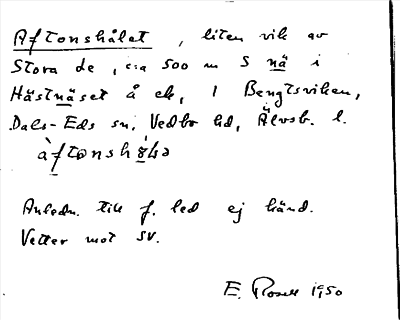 Aftonshålet, liten vik av
Stora Le, c:a 500 m S nä i
Hästnäset å ek, 1 Bengtsviken,
Dals-Eds sn, Vedbo hd, Älvsb. l.
àftonshòlə
Anledn. till f. led ej känd.
Vetter mot SV.
E. Rosell 1950